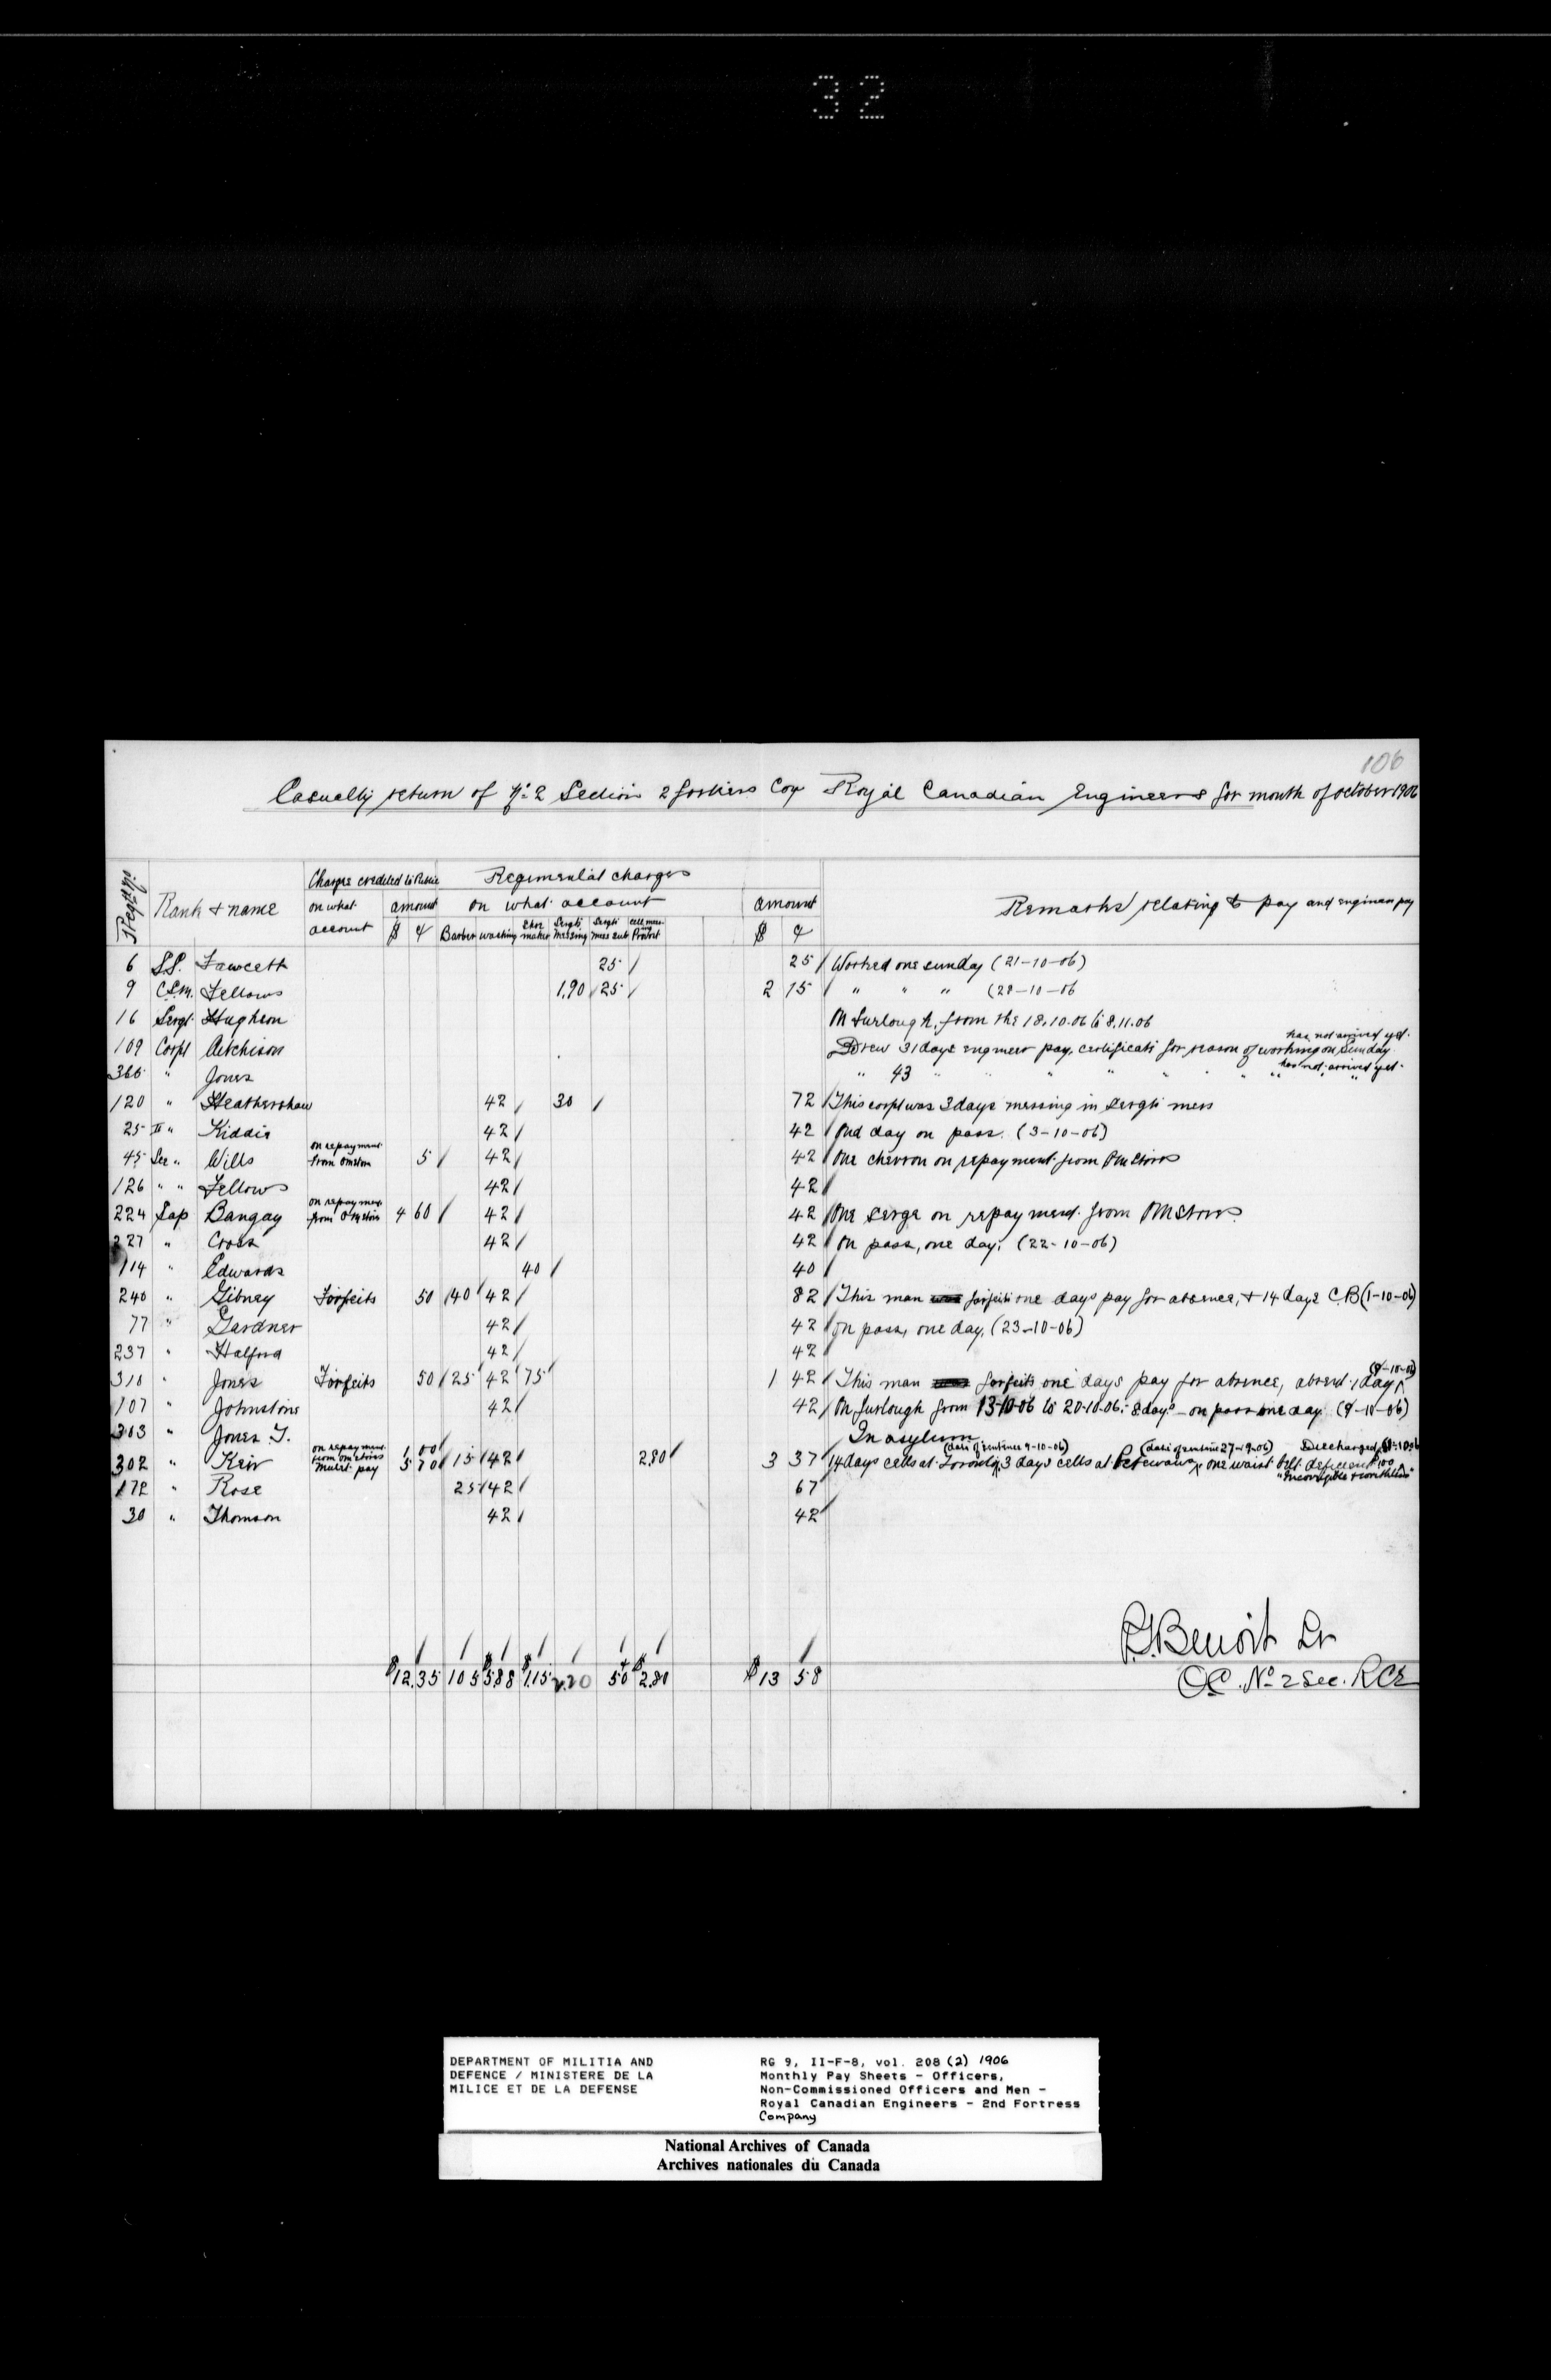 32
106
Casualty return of No 2 Section 2 Fortress Coy Royal Canadian Engineers for month of October 1906
Regtl No | Rank & name | Charges credited to Public | Regimental charges | Remarks relating to pay and engineer pay
on what account | amount | on what account | amount
$ ¢ | Barber | washing | Shoe maker | Sergts messing | Sergts mess sub | cell mess Provost | $ ¢
6 S.S. Fawcett 25 / 25 / Worked one sunday (21-10-06)
9 C.S.M. Fellows 1.90 / 25 / 2 15 / " " " (28-10-06
16 Sergt Hughson On furlough, from the 18.10.06 to 8.11.06
109 Corpl Aitchison Drew 31 days engineer pay, certificate for reason of working on Sunday has not arrived yet.
366 " Jones " 43 " " " " " " " " has not arrived yet.
120 " Heathershaw 42 / 30 / 72 / This corpl was 3 days messing in sergts mess
25 II " Kiddie 42 / 42 / One day on pass. (3-10-06)
45 Sec " Wills on repayment from OmStores 5 / 42 / 42 / One chevron on repayment from OmStores
126 " " Fellows 42 / 42 /
224 Sap Bangay on repayment from OmStores 4 60 / 42 / 42 / One serge on repayment from OmStores
227 " Cross 42 / 42 / On pass, one day. (22-10-06)
114 " Edwards 40 / 40 /
240 " Gibney Forfeits 50 / 40 / 42 / 82 / This man forfeits one days pay for absence, + 14 days C.B (1-10-06)
77 " Gardner 42 / 42 / On pass, one day. (23-10-06)
237 " Halford 42 / 42
310 " Jones Forfeits 50 / 25 42 / 75 / 1 42 / This man forfeits one days pay for absence, absent 1 day (9-10-06)
107 " Johnstone 42 / 42 / On furlough from 13-10-06 to 20-10-06. 8 days - on pass one day. (9-10-06)
303 " Jones T. In asylum
302 " Keir on repayment from OmStores 1 00 / Mulct pay 5 70 / 15 / 42 / 2.80 / 3 37 / 14 days cells at Toronto (date of sentence 9-10-06) 3 days cells at Petewawa (date of sentence 27-9-06) one waist belt deficient 1.00 Discharged "Incorrigible & worthless"
172 " Rose 25 / 42 / 67
30 " Thomson 42 / 42
$12.35 105 $5.88 $1.15 2.20 50 $2.80 $13 58
Benoit Lr
O.C. No 2 Sec. RCE
DEPARTMENT OF MILITIA AND
DEFENCE / MINISTERE DE LA
MILICE ET DE LA DEFENSE
RG 9, II-F-8, vol. 208 (2) 1906
Monthly Pay Sheets - Officers,
Non-Commissioned Officers and Men -
Royal Canadian Engineers - 2nd Fortress
Company
National Archives of Canada
Archives nationales du Canada